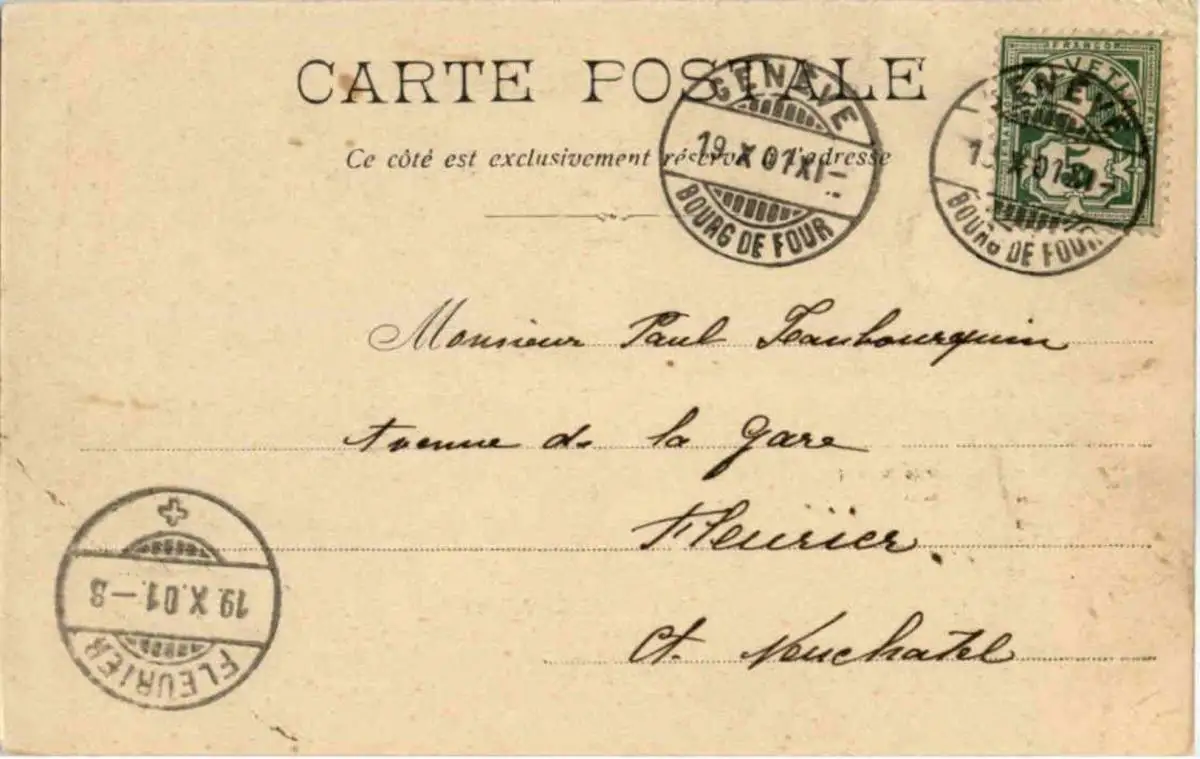 CARTE POSTALE
Ce côté est exclusivement réservé à l'adresse
GENÈVE
19.X.01 XI-
BOURG DE FOUR
FRANCO
HELVETIA
5
GENÈVE
19.X.01 XI-
BOURG DE FOUR
Monsieur Paul Jeanbourquin
Avenue de la Gare
Fleurier.
Ct. Neuchatel
19.X.01.-8
FLEURIER